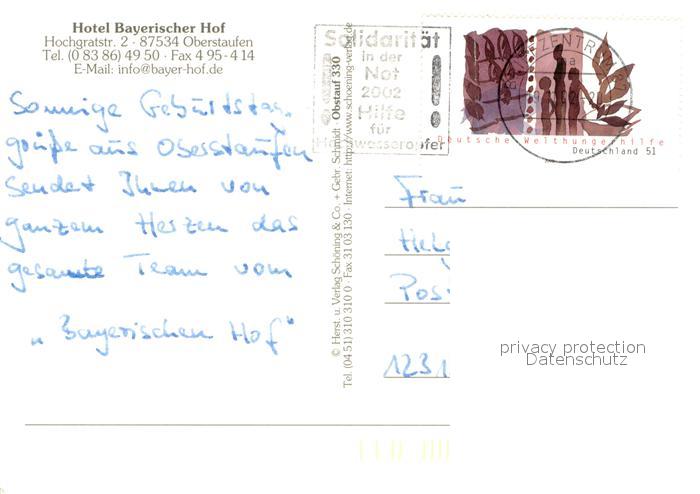 Hotel Bayerischer Hof
Hochgratstr. 2 · 87534 Oberstaufen
Tel. (0 83 86) 49 50 · Fax 4 95-4 14
E-Mail: info@bayer-hof.de
Sonnige Geburtstags-
grüße aus Oberstaufen
sendet Ihnen von
ganzem Herzen das
gesamte Team vom
„Bayerischen Hof"
© Herst. u. Verlag Schöning & Co. + Gebr. Schmidt · Obstauf 330
Tel. (04 51) 310 310 0 · Fax 31 03 130 · Internet: http://www.schoening-verlag.de
Solidarität
in der
Not
2002
Hilfe
für
Hochwasseropfer
ZENTR
Deutsche Welthungerhilfe
Deutschland 51
Frau
Hel
Pos
123
privacy protection
Datenschutz